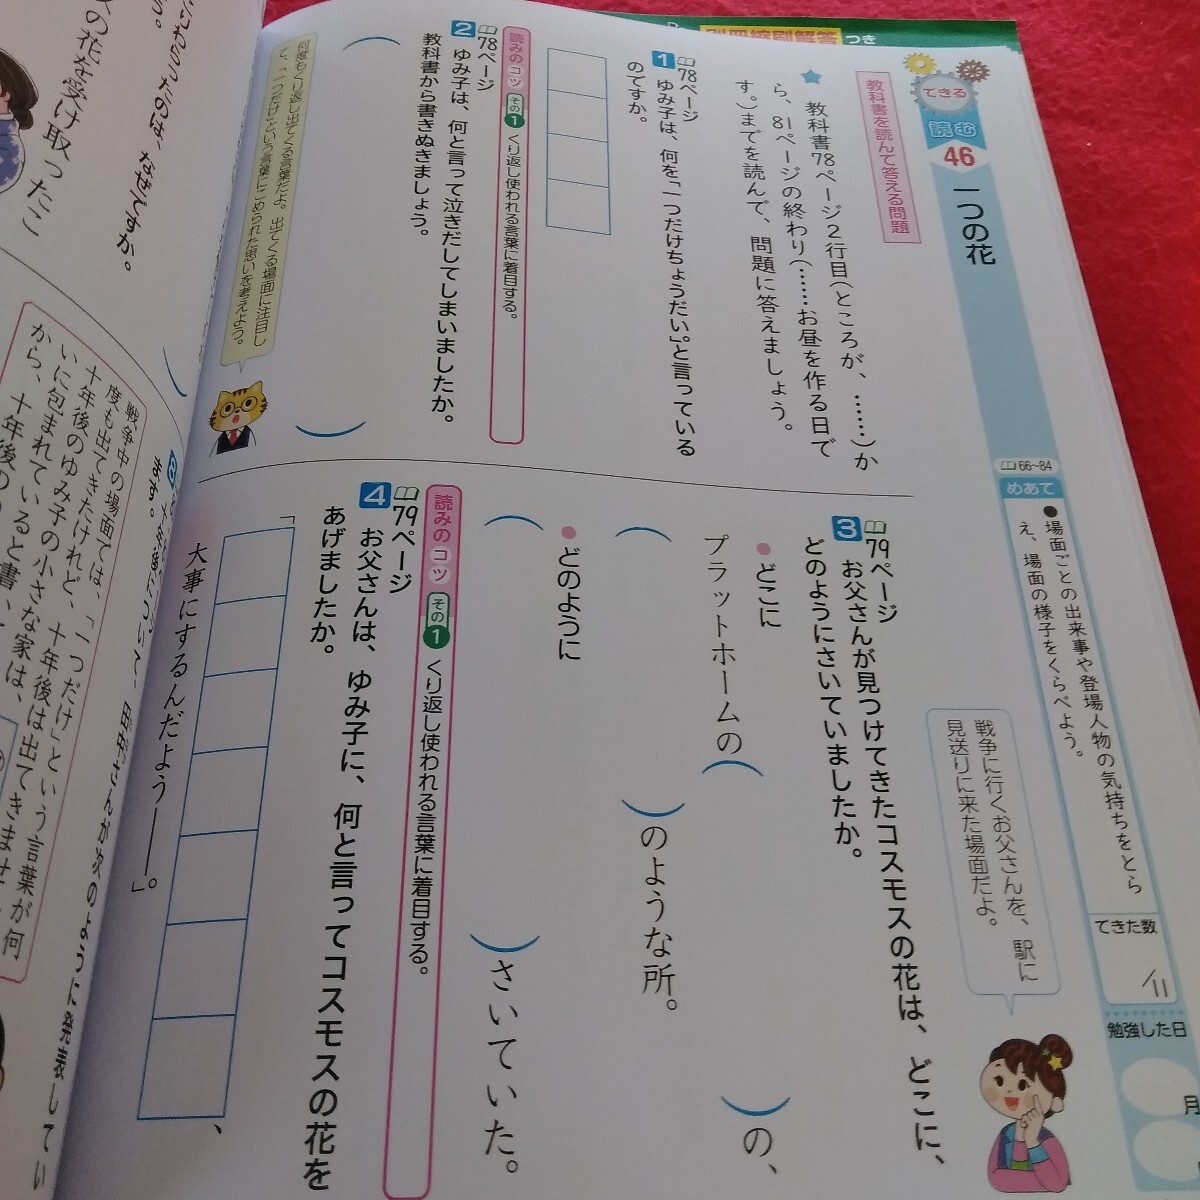 別冊縮刷解答
つき
できる
読む
46
一つの花
66~84
めあて
●場面ごとの出来事や登場人物の気持ちをとら
え、場面の様子をくらべよう。
てきた数
/11
勉強した日
月
教科書を読んで答える問題
★教科書78ページ2行目(ところが、……)か
ら、81ページの終わり(……お昼を作る日で
す。)までを読んで、問題に答えましょう。
78ページ
1 ゆみ子は、何を「一つだけちょうだい。」と言っている
のですか。
読みのコツ その1 くり返し使われる言葉に着目する。
78ページ
2 ゆみ子は、何と言って泣きだしてしまいましたか。
教科書から書きぬきましょう。
何度もくり返し出てくる言葉だよ。出てくる場面に注目し
て、「一つだけ」という言葉にこめられた思いを考えよう。
戦争に行くお父さんを、駅に
見送りに来た場面だよ。
79ページ
3 お父さんが見つけてきたコスモスの花は、どこに、
どのようにさいていましたか。
●どこに
プラットホームの( )の、
( )のような所。
●どのように
( )さいていた。
読みのコツ その1 くり返し使われる言葉に着目する。
79ページ
4 お父さんは、ゆみ子に、何と言ってコスモスの花を
あげましたか。
「 、
大事にするんだよう――。」
いわらったのは、なぜですか。
の花を受け取ったこ
さんが次のように発表してい
ます。
戦争中の場面では、「一つだけ」という言葉が何
度も出てきたけれど、十年後は出てきませ
十年後のゆみ子の小さな家は、
いに包まれていると書
から、十年後の